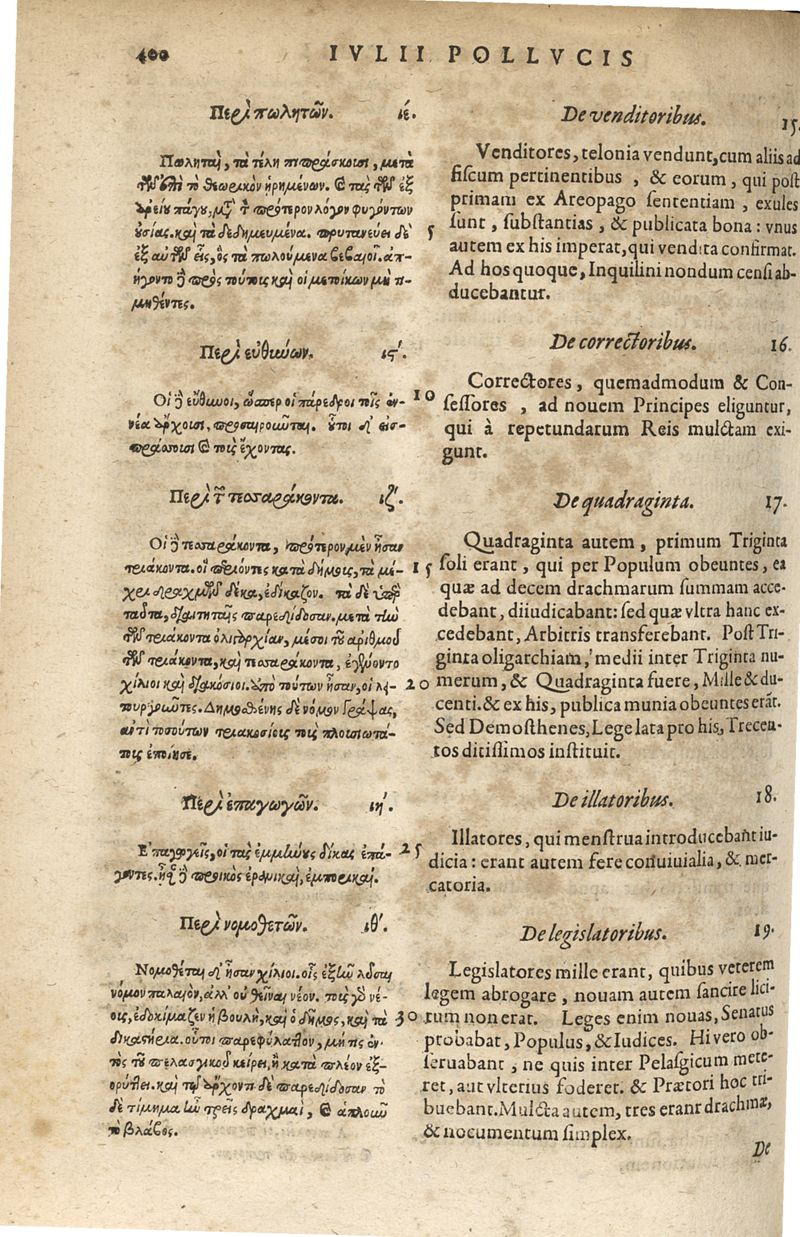 400 IVLII POLLVCIS
Περὶ πωλητῶν. ιέ.
Πωληταὶ, τὰ τέλη πιπράσκουσι, μετὰ
τῶν ἐπὶ τὸ θεωρικὸν ᾑρημένων. καὶ τὰς τῶν ἐξ
ἀρείου πάγου, μετὰ τὸ πρότερον λόγον φυγόντων
οὐσίας. καὶ τὰ δεδημευμένα. πρυτανεύει δὲ
ἐξ αὐτῶν εἷς, ὃς τὰ πωλούμενα βεβαιοῖ. ἀπ-
ήγοντο δὲ πρὸς τούτοις καὶ οἱ μετοίκιον μὴ τι-
μηθέντες.
Περὶ εὐθύνων. ις΄.
Οἱ δὲ εὔθυνοι, ὥσπερ οἱ πάρεδροι τοῖς ἐν-
νέα ἄρχουσι, προσαιροῦνται. οὗτοι δ' εἰσ-
πράσσουσι καὶ τοὺς ἔχοντας.
Περὶ τῶν τεσσαράκοντα. ιζ΄.
Οἱ δὲ τεσσαράκοντα, πρότερον μὲν ἦσαν
τριάκοντα. οἱ περιϊόντες κατὰ δήμους, τὰ μέ-
χρι δραχμῶν δέκα, ἐδίκαζον. τὰ δὲ ὑπὲρ
ταῦτα, διαιτηταῖς παρεδίδοσαν. μετὰ τὴν
τῶν τριάκοντα ὀλιγαρχίαν, μέσοι τοῦ ἀριθμοῦ
τῶν τριάκοντα, καὶ τεσσαράκοντα, ἐγένοντο
χίλιοι καὶ διακόσιοι. ἀπὸ τούτων ἦσαν, οἱ λει-
τουργοῦντες. Δημοσθένης δὲ νόμον γράψας,
ἀντὶ τοσούτων τριακοσίοις τοῖς πλουσιωτά-
τοις ἐποίησε.
Περὶ ἐπαγωγῶν. ιη΄.
Ἐπαγωγεῖς, οἱ τὰς ἐμμήνους δίκας ἐπά-
γοντες. ἦσαν δὲ προικὸς ἐρανικαὶ, ἐμπορικαί.
Περὶ νομοθετῶν. ιθ΄.
Νομοθέται δ' ἦσαν χίλιοι. οἷς ἐξῆν λῦσαι
νόμον παλαιὸν, ἀλλ' οὐ θεῖναι νέον. τοὺς γὸ νέ-
ους, ἐδοκίμαζεν ἡ βουλὴ, καὶ ὁ δῆμος, καὶ τὰ
δικαστήρια. οὗτοι παρεφύλαττον, μή τις ἐν-
τὸς τοῦ πελασγικοῦ κείρει, ἢ κατὰ πλέον ἐξ-
ορύττει. καὶ τῷ ἄρχοντι δὲ παρεδίδοσαν τὸ
δὲ τίμημα ἦν τρεῖς δραχμαὶ, καὶ ἁπλοῦν
τὸ βλάβος.
5
10
15
20
25
30
De venditoribus. 15.
Venditores, telonia vendunt, cum aliis ad
fiscum pertinentibus, & eorum, qui post
primam ex Areopago sententiam, exules
sunt, substantias, & publicata bona: vnus
autem ex his imperat, qui vendita confirmat.
Ad hos quoque, Inquilini nondum censi ab-
ducebantur.
De correctoribus. 16.
Correctores, quemadmodum & Con-
sessores, ad nouem Principes eliguntur,
qui à repetundarum Reis mulctam exi-
gunt.
De quadraginta. 17.
Quadraginta autem, primum Triginta
soli erant, qui per Populum obeuntes, ea
quæ ad decem drachmarum summam acce-
debant, diiudicabant: sed quæ vltra hanc ex-
cedebant, Arbitris transferebant. Post Tri-
ginta oligarchiam, medii inter Triginta nu-
merum, & Quadraginta fuere, Mille & du-
centi. & ex his, publica munia obeuntes erāt.
Sed Demosthenes, Lege lata pro his, Trecen-
tos ditissimos instituit.
De illatoribus. 18.
Illatores, qui menstrua introducebant iu-
dicia: erant autem fere conuiuialia, & mer-
catoria.
De legislatoribus. 19.
Legislatores mille erant, quibus veterem
legem abrogare, nouam autem sancire lici-
tum non erat. Leges enim nouas, Senatus
probabat, Populus, & Iudices. Hi vero ob-
seruabant, ne quis inter Pelasgicum mete-
ret, aut vlterius foderet. & Prætori hoc tri-
buebant. Mulcta autem, tres erant drachmæ,
& nocumentum simplex.
De